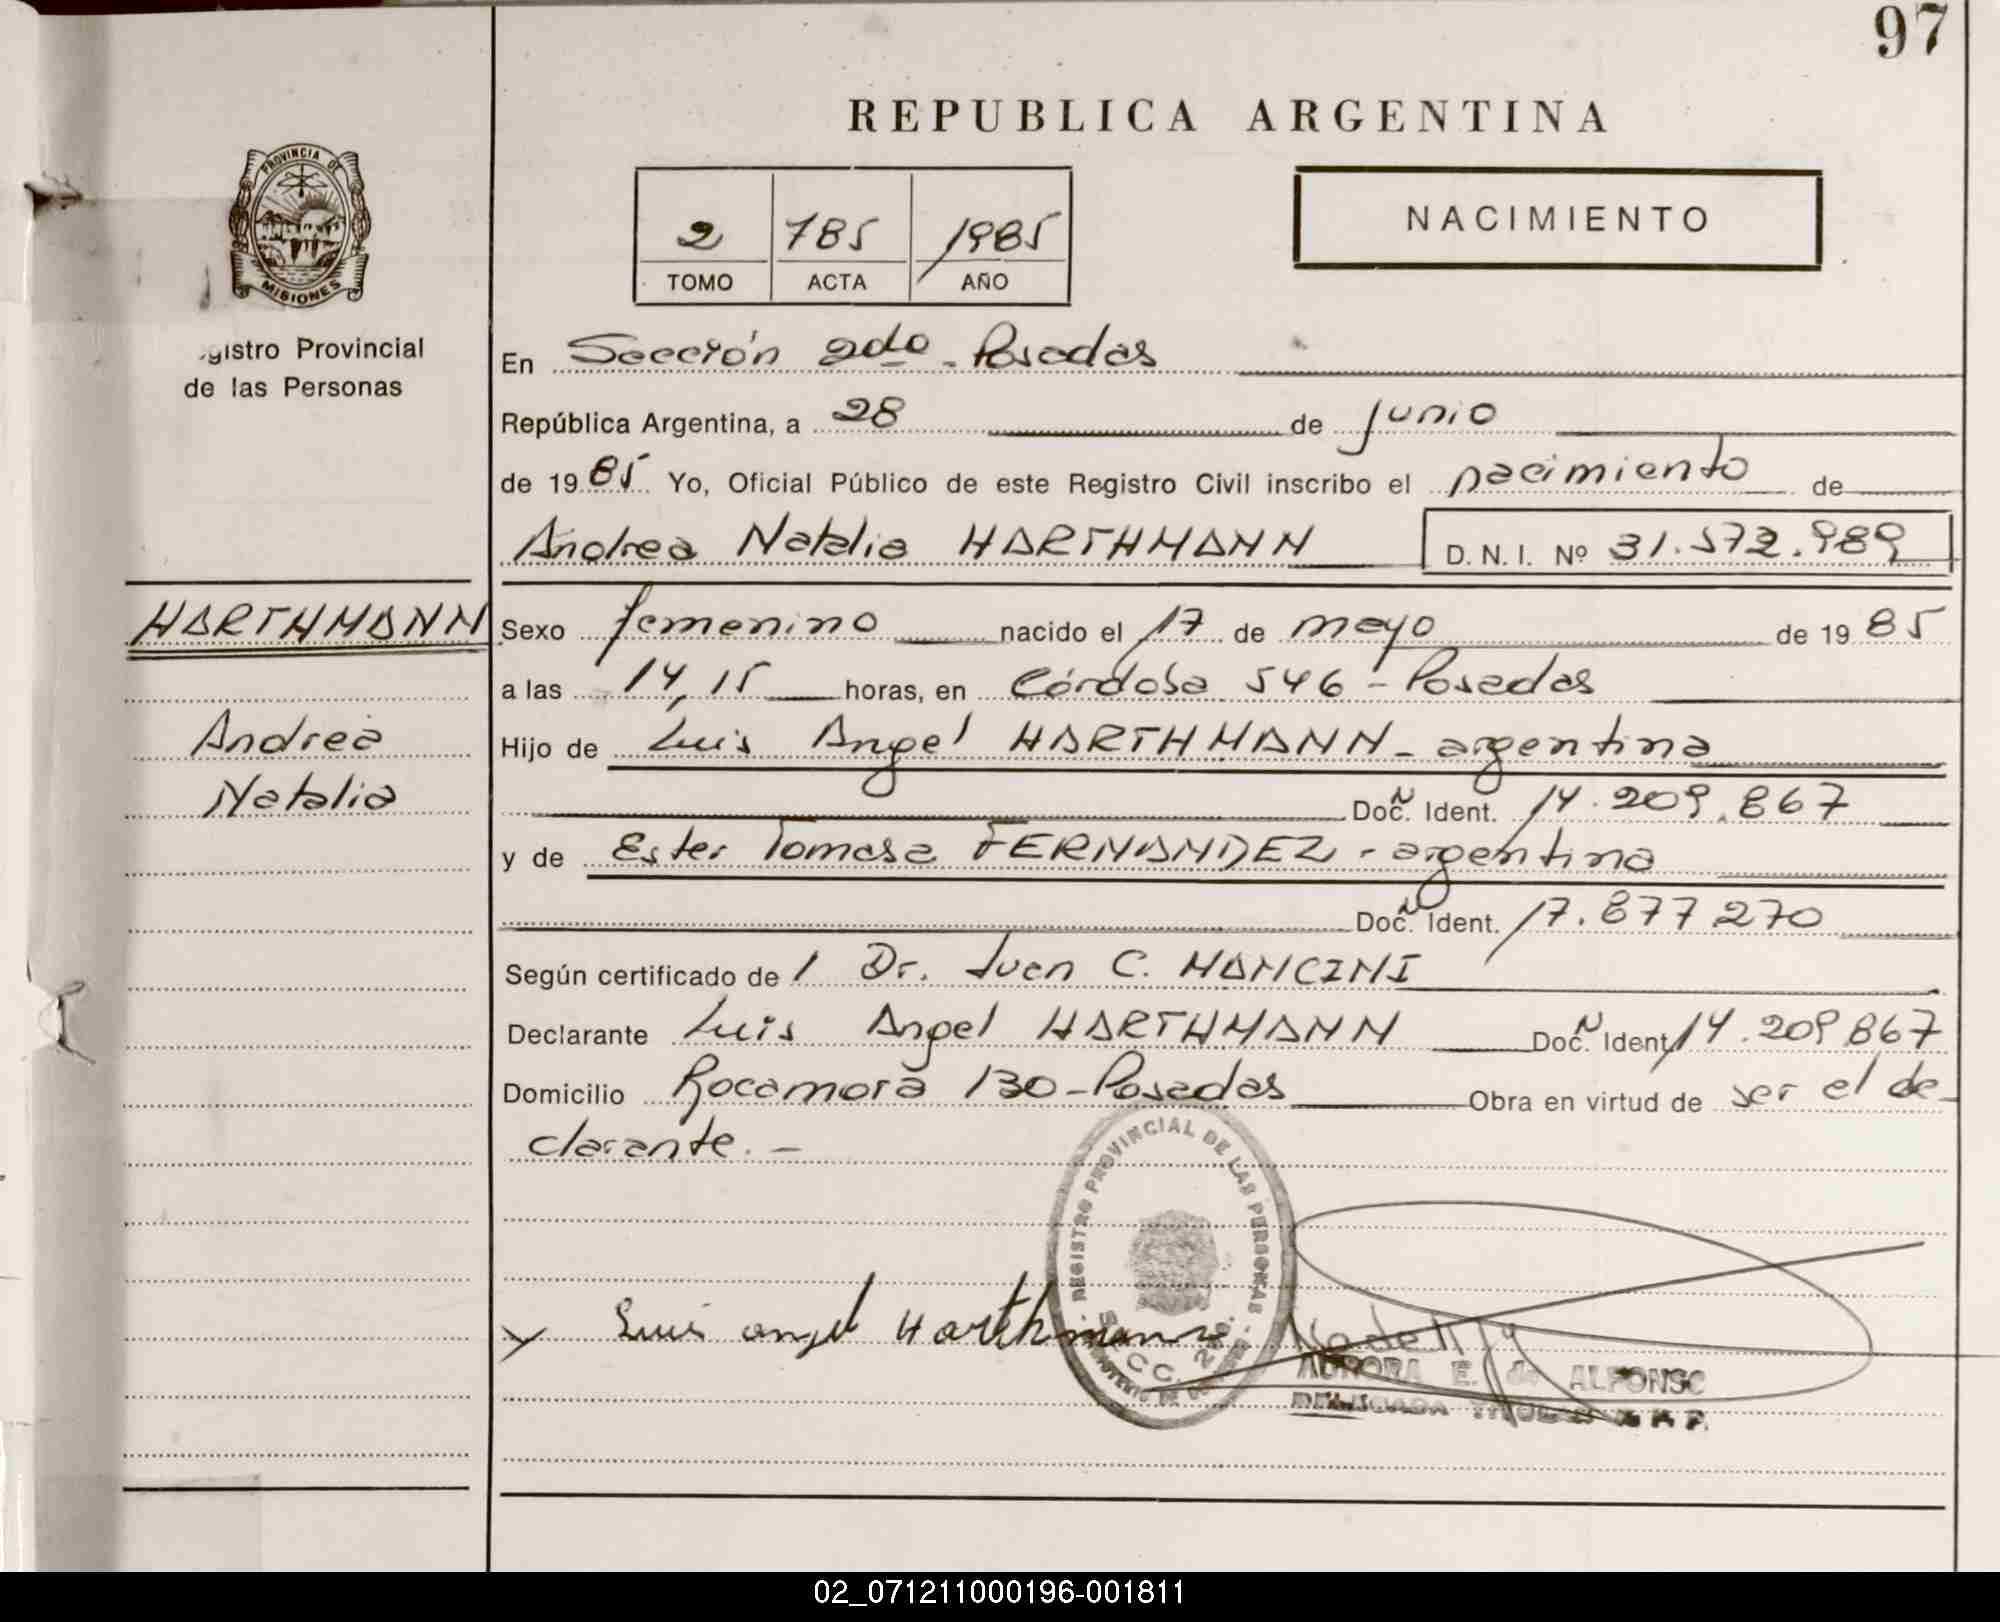 97
REPUBLICA ARGENTINA
PROVINCIA DE
MISIONES
2 785 1985
TOMO ACTA AÑO
NACIMIENTO
gistro Provincial
de las Personas
En Sección 2do - Posadas
República Argentina, a 28 de junio
de 1985 Yo, Oficial Público de este Registro Civil inscribo el nacimiento de
Andrea Natalia HARTHMANN D. N. I. Nº 31.572.989
HARTHMANN
Andrea
Natalia
Sexo femenino nacido el 17 de mayo de 1985
a las 14,15 horas, en Córdoba 546 - Posadas
Hijo de Luis Angel HARTHMANN - argentina
Doc. Ident. 14.209.867
y de Ester Tomasa FERNANDEZ - argentina
Doc. Ident. 17.877.270
Según certificado de / Dr. Juan C. MANCINI
Declarante Luis Angel HARTHMANN Doc. Ident. 14.209.867
Domicilio Rocamora 130 - Posadas Obra en virtud de ser el de-
clarante. -
REGISTRO PROVINCIAL DE LAS PERSONAS
Luis angel Harthmann
AURORA E. de ALFONSO
DELEGADA TITULAR
02_071211000196-001811